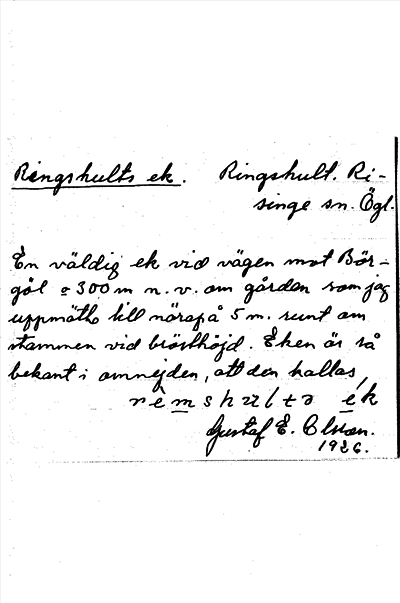 Ringshults ek. Ringshult. Ri-
singe sn. Ögl.
En väldig ek vid vägen mot Bör-
göl c 300 m n. v. om gården som jag
uppmätte till närapå 5 m. runt om
stammen vid brösthöjd. Eken är så
bekant i omnejden, att den kallas
rèmshulta ék
Gustaf E. Olson.
1926.